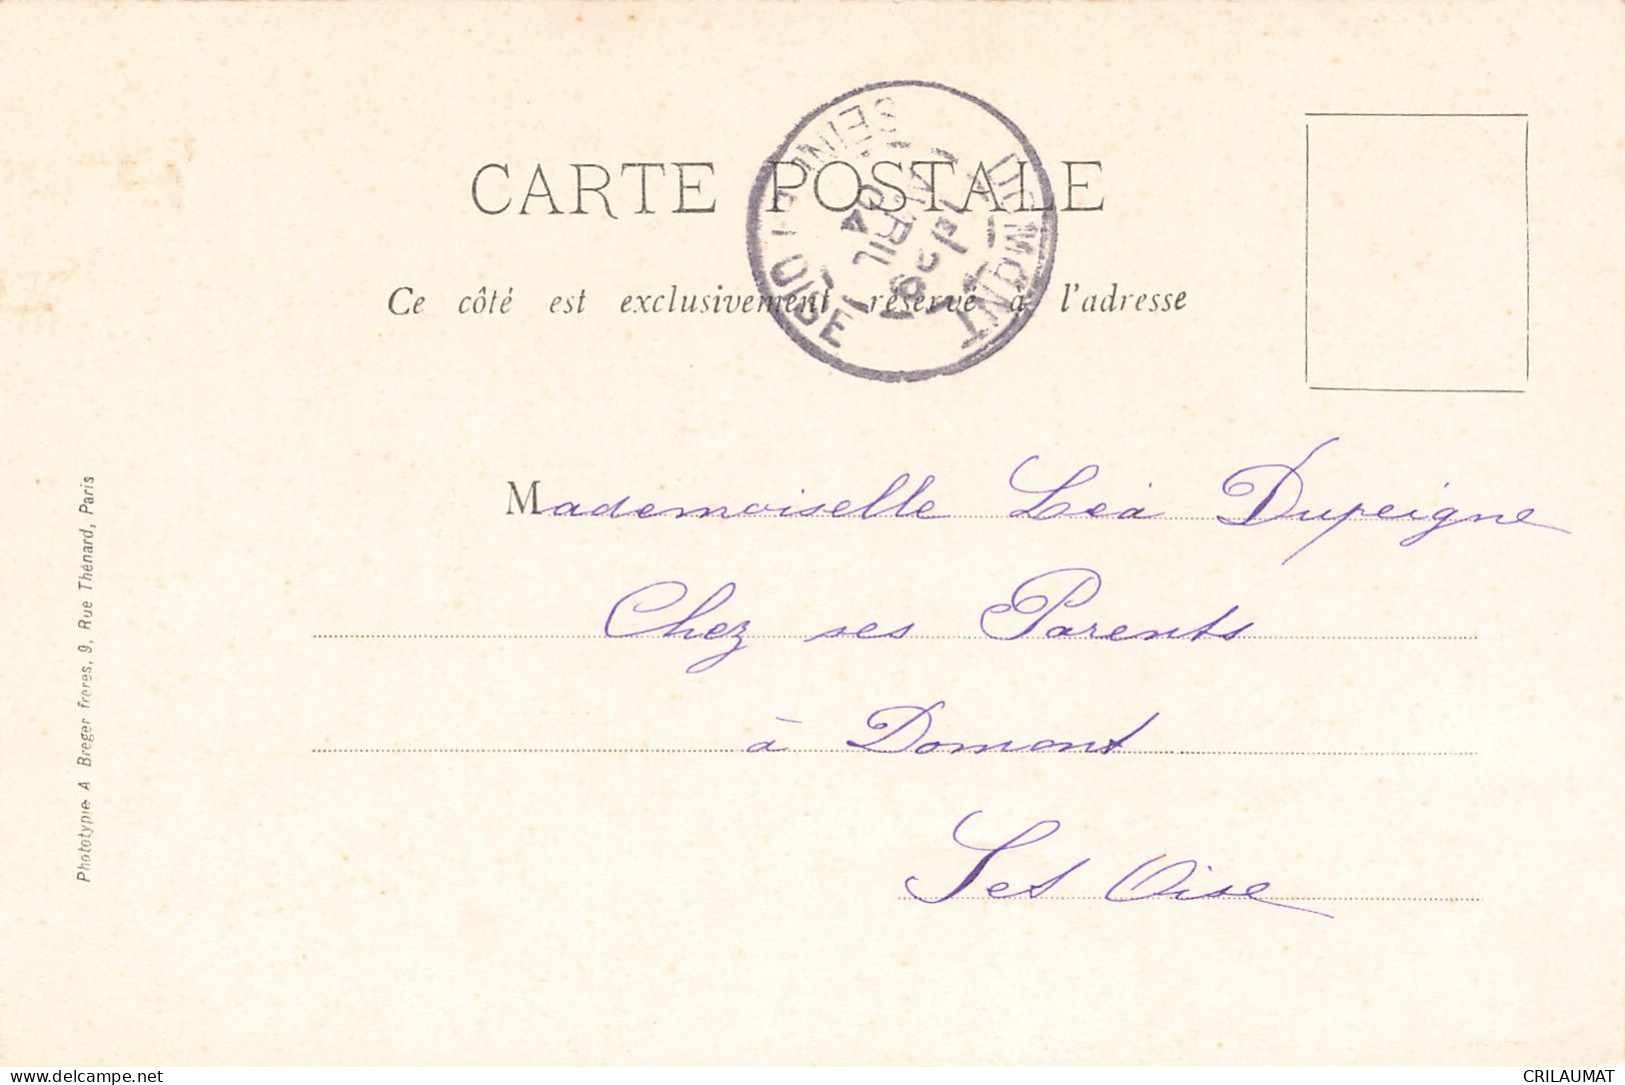 CARTE POSTALE
Ce côté est exclusivement réservé à l'adresse
DOMONT
SEINE ET OISE
AVRIL
04
Mademoiselle Léa Dupeigne
Chez ses Parents
à Domont
S et Oise
Phototypie A Breger frères, 9, Rue Thénard, Paris
www.delcampe.net
CRILAUMAT